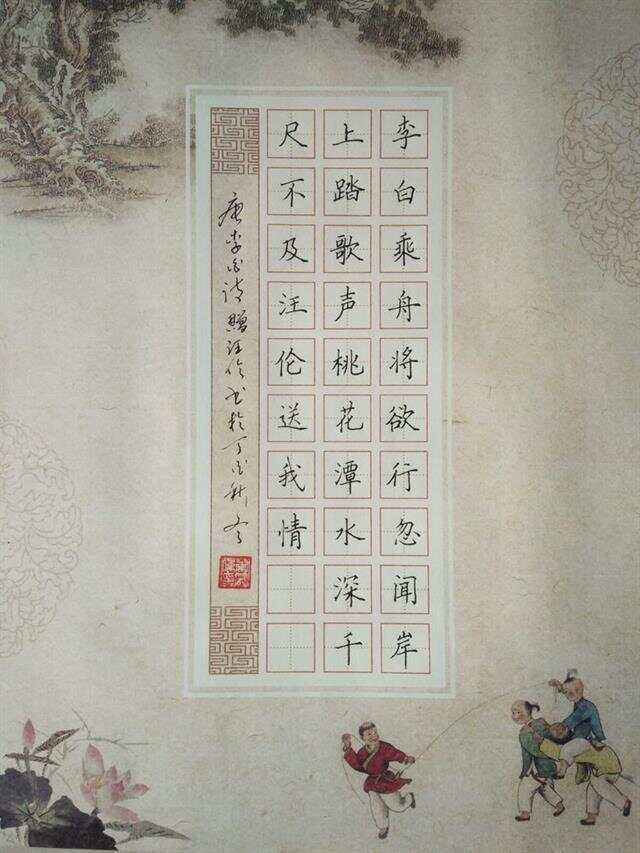 李白乘舟将欲行忽闻岸
上踏歌声桃花潭水深千
尺不及汪伦送我情
唐李白诗赠汪伦书于丁酉秋